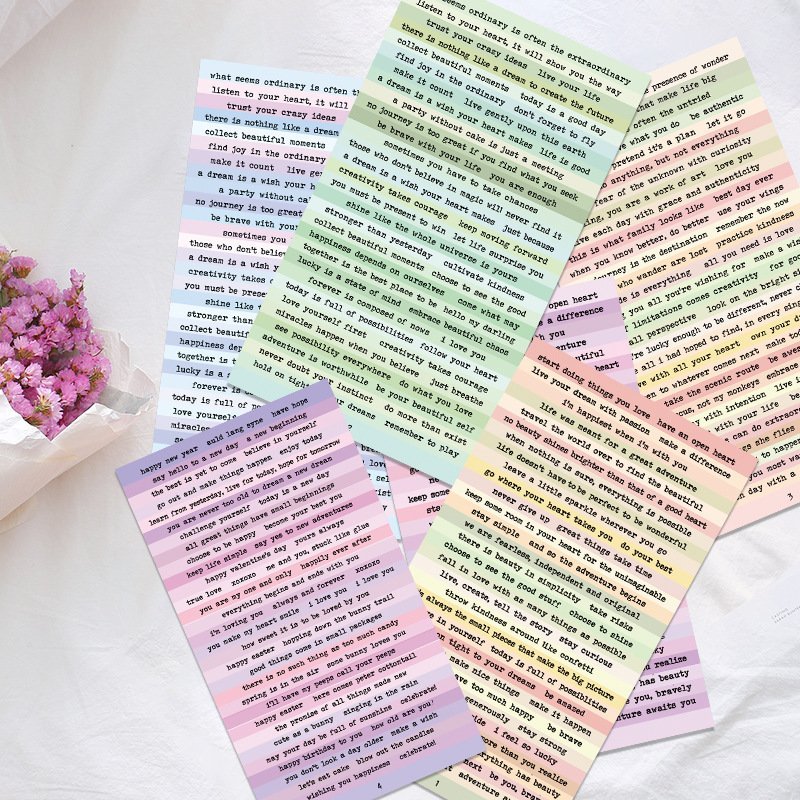 seems ordinary is often the extraordinary
listen to your heart, it will show you the way
trust your crazy ideas live your life
there is nothing like a dream to create the future
collect beautiful moments today is a good day
find joy in the ordinary don't forget to fly
make it count live gently upon this earth
a dream is a wish your heart makes life is good
a party without cake is just a meeting
no journey is too great if you find what you seek
be brave with your life you are enough
sometimes you have to take chances
those who don't believe in magic will never find it
a dream is a wish your heart makes just because
creativity takes courage keep moving forward
you must be present to win let life surprise you
shine like the whole universe is yours
stronger than yesterday cultivate kindness
collect beautiful moments choose to see the good
happiness depends on ourselves come what may
together is the best place to be hello my darling
lucky is a state of mind embrace beautiful chaos
forever is composed of nows i love you
today is full of possibilities follow your heart
love yourself first creativity takes courage
miracles happen when you believe just breathe
see possibility everywhere do what you love
adventure is worthwhile be your beautiful self
never doubt your instinct do more than exist
hold on tight your dreams remember to play
what seems ordinary is often th
listen to your heart, it will
trust your crazy ideas
there is nothing like a dream
collect beautiful moments
find joy in the ordinary
make it count live gen
a dream is a wish your h
a party without ca
no journey is too great
be brave with your
sometimes you
those who don't belie
a dream is a wish y
creativity takes c
you must be prese
shine like
stronger than
collect beautif
happiness dep
together is t
lucky is a s
forever is
today is full of p
love yourself
miracles
see
presence of wonder
make life big
often the untried
what you do be authentic
pretend it's a plan let it go
anything, but not everything
fear of the unknown with curiosity
you are a work of art love you
each day with grace and authenticity
this is what family looks like best day ever
when you know better, do better use your wings
journey is the destination remember the now
who wander are lost practice kindness
is everything all you need is love
you all you're wishing for make a wis
limitations comes creativity for goo
all perspective look on the bright si
lucky enough to be different, never
all i had hoped to find, in every sin
with all your heart own your
to whatever comes next make to
take the scenic route be awes
not my monkeys embrace
with intention live i
with your life be
can do extraor
she flies
to happe
you most wa
day with a
3
open heart
a difference
you
autiful
venture
start doing things you love have an open heart
live your dream with passion make a difference
i'm happiest when it's with you
life was meant for a great adventure
travel the world over to find the beautiful
no beauty shines brighter than that of a good heart
when nothing is sure, everything is possible
life doesn't have to be perfect to be wonderful
leave a little sparkle wherever you go
go where your heart takes you do your best
never give up great things take time
keep some room in your heart for the unimaginable
stay simple and so the adventure begins
we are fearless, independent and original
there is beauty in simplicity take risks
choose to see the good stuff choose to shine
fall in love with as many things as possible
live, create, tell the story stay curious
throw kindness around like confetti
always the small pieces that make the big picture
in yourself today is full of possibilities
on tight to your dreams be amazed
make nice things make it happen
too much happy be brave
generously stay strong
i feel so lucky
more than you realize
everything has beauty
next be you, bravely
adventure aw
1
happy new year auld lang syne have hope
say hello to a new day a new beginning
the best is yet to come believe in yourself
go out and make things happen enjoy today
learn from yesterday, live for today, hope for tomorrow
you are never too old to dream a new dream
challenge yourself today is a new day
all great things have small beginnings
choose to be happy become your best you
keep life simple say yes to new adventures
happy valentine's day yours always
true love xoxoxo me and you, stuck like glue
you are my one and only happily ever after
everything begins and ends with you
i'm loving you always and forever xoxoxo
you make my heart smile i love you i love you
how sweet it is to be loved by you
happy easter hopping down the bunny trail
good things come in small packages
there is no such thing as too much candy
spring is in the air some bunny loves you
i'll have my peeps call your peeps
happy easter here comes peter cottontail
the promise of all things made new
cute as a bunny singing in the rain
may your day be full of sunshine celebrate!
happy birthday to you how old are you?
you don't look a day older make a wish
let's eat cake blow out the candles
wishing you happiness celebrate!
4
keep some
sta
realize
has beauty
you, bravely
ture awaits you